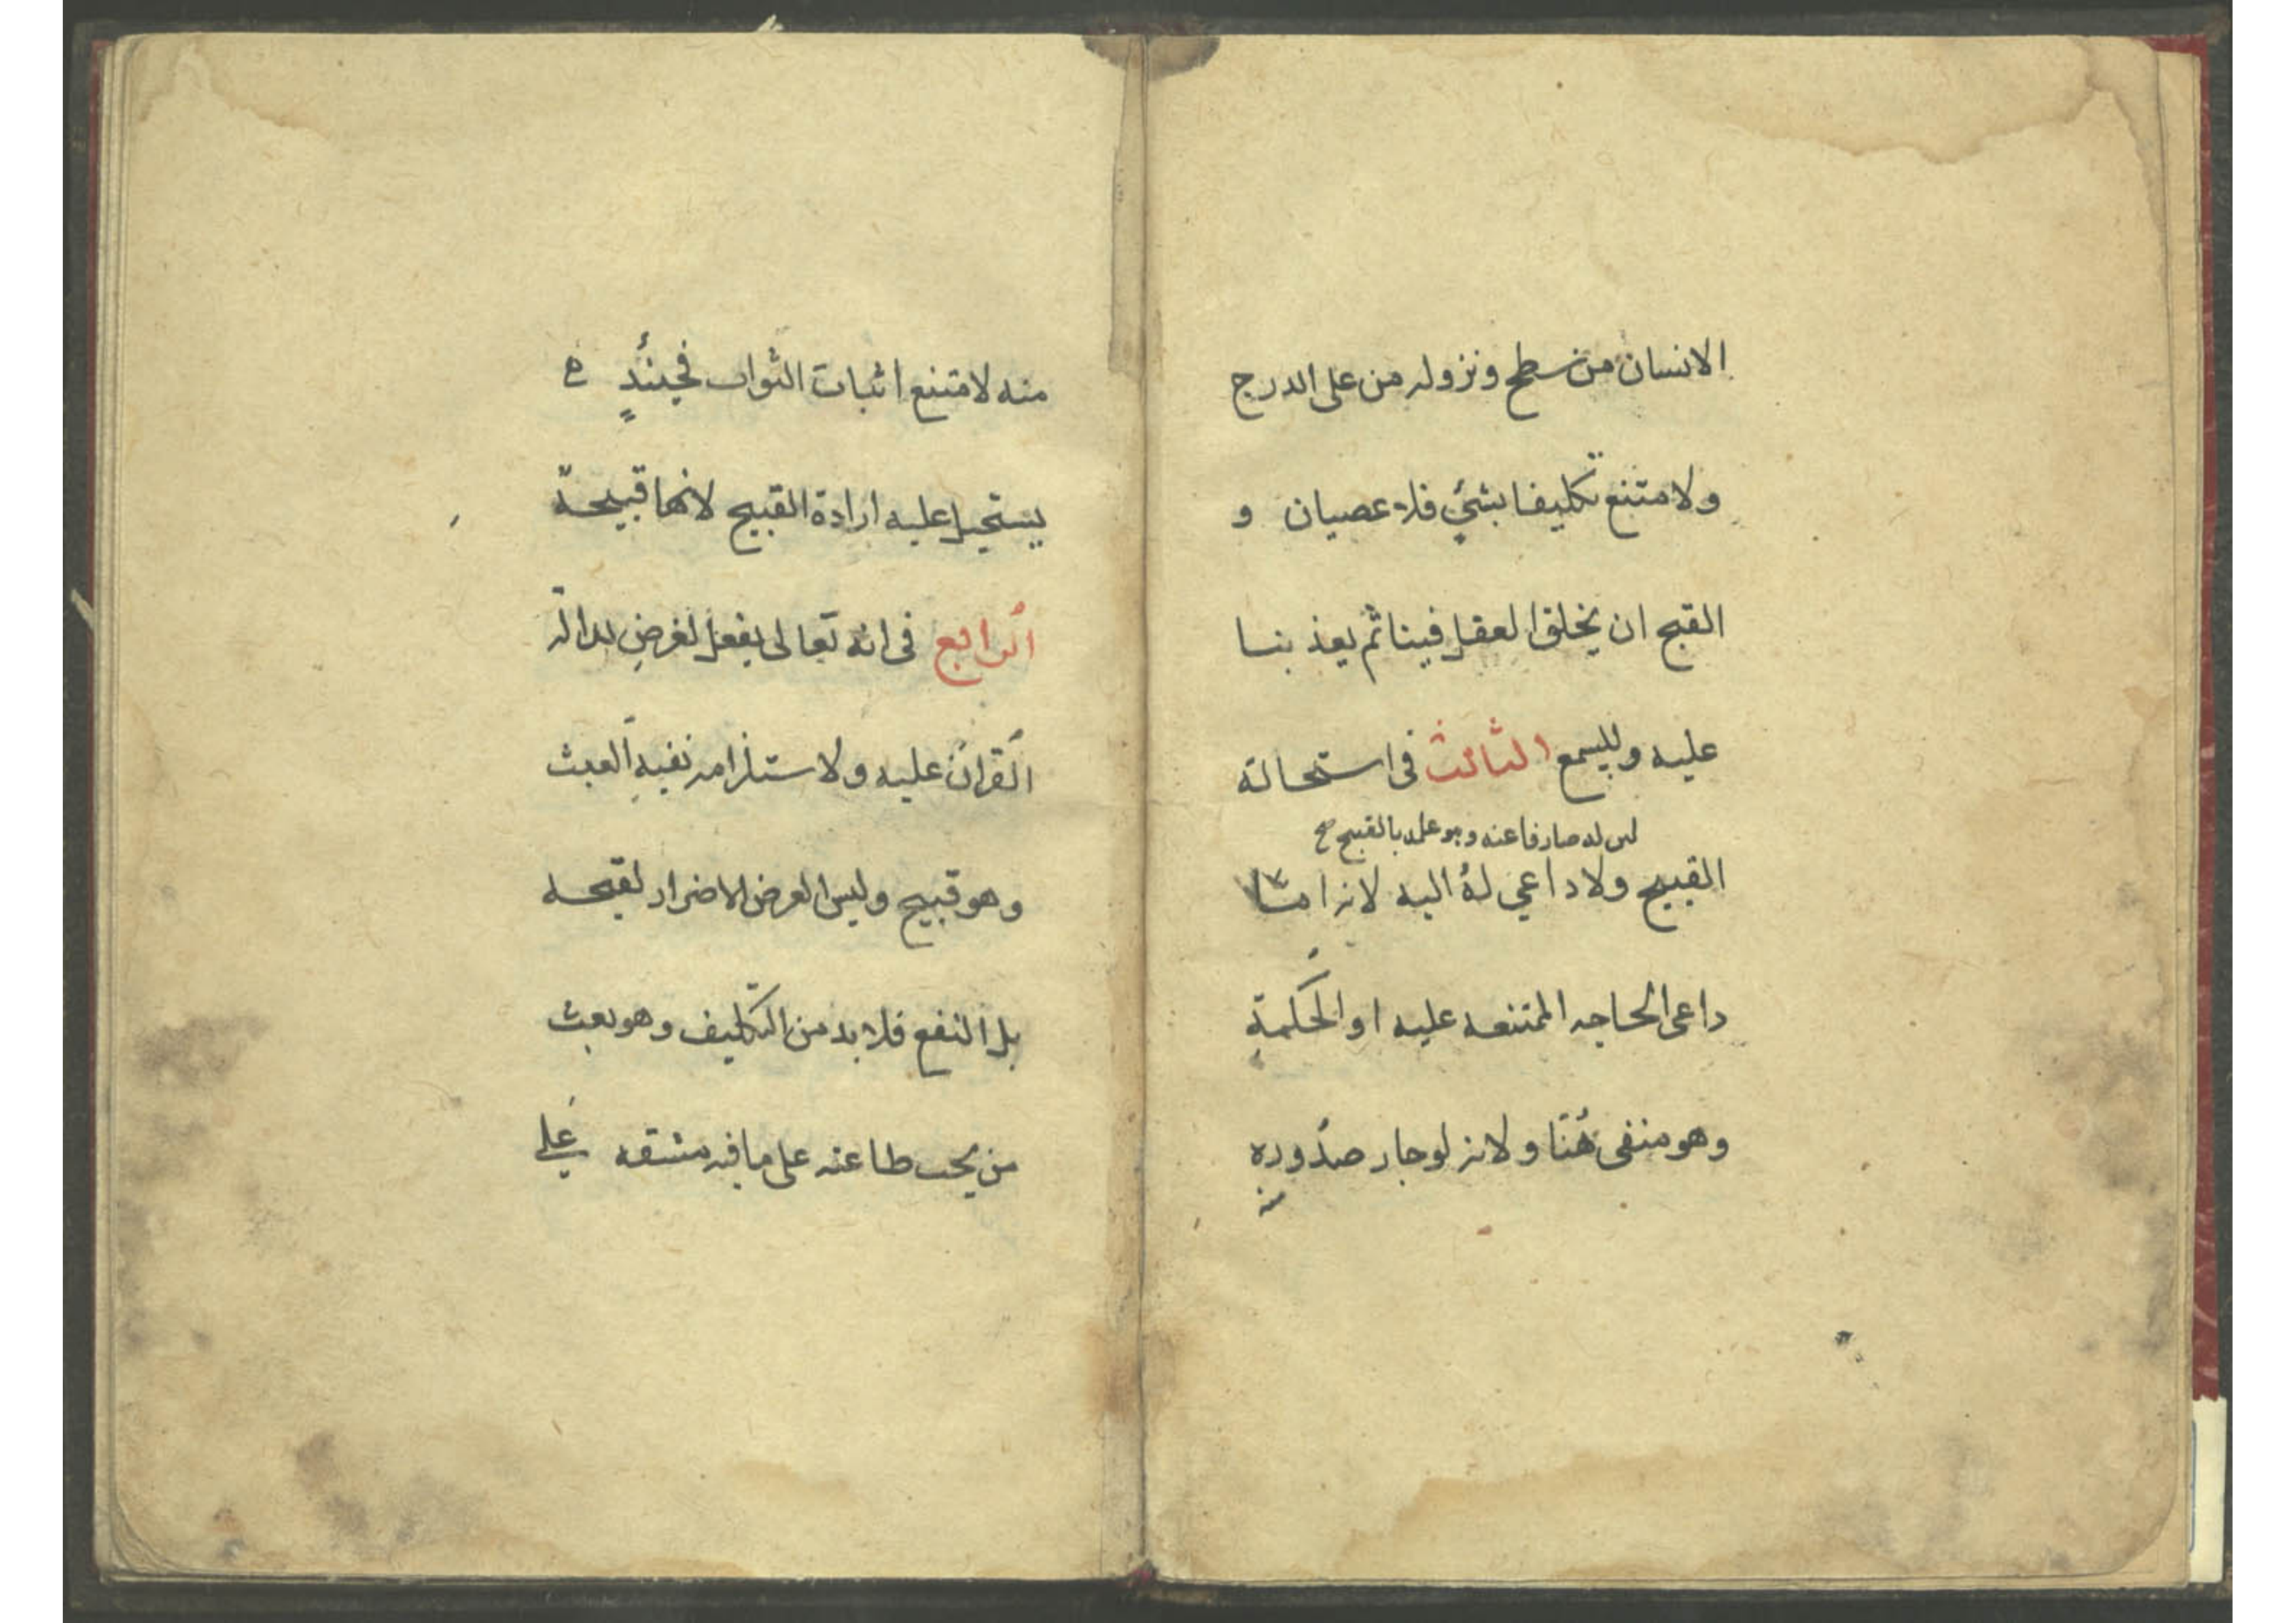 الانسان من سطح ونزوله من على الدرج
ولامتنع تكليفنا بشئ فلا عصيان و
القبح ان يخلق العقل فينا ثم يعذبنا
عليه وللسمع الثالث فى استحالة
لان له صارفا عنه وهو علمه بالقبيح صح
القبيح ولا داعي له اليه لانه اما
داعى الحاجه الممتنعه عليه او الحكمة
وهو منفى هنا ولانه لو جاز صدوره
منه
منه لامتنع اثبات النبوات فحينئذ
يستحيل عليه ارادة القبيح لانها قبيحة
الرابع فى انه تعالى يفعل لغرض لدلالة
القران عليه ولاستلزامه نفيه العبث
وهو قبيح وليس الغرض الاضرار لقبحه
بل النفع فلا بد من التكليف وهو بعث
من يجب طاعته على ما فيه مشقه على